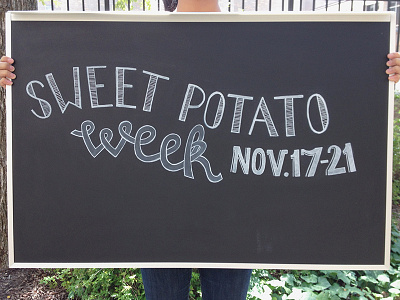 SWEET POTATO
week NOV.17-21